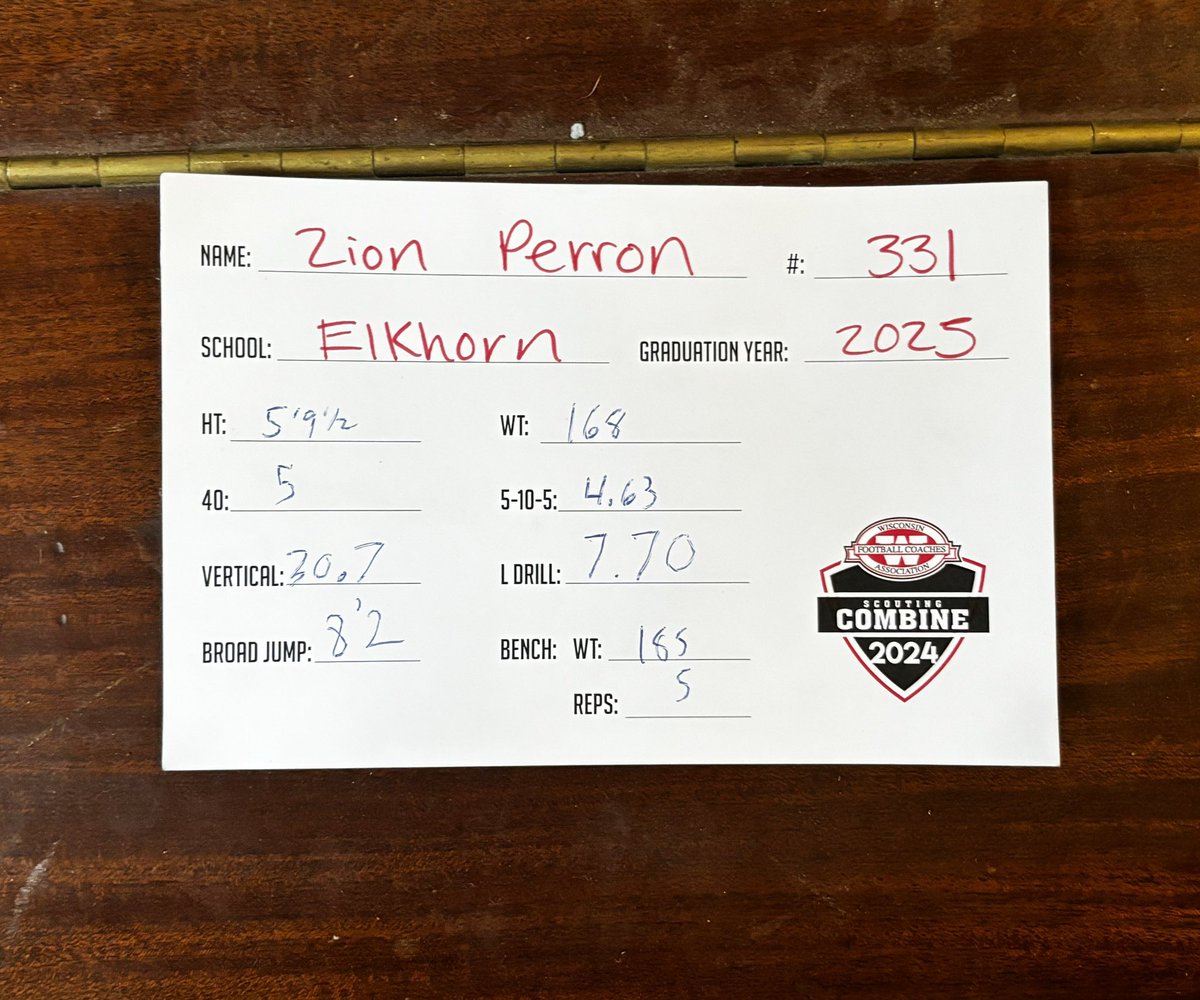 NAME: Zion Perron #: 331
SCHOOL: Elkhorn GRADUATION YEAR: 2025
HT: 5'9 1/2 WT: 168
40: 5 5-10-5: 4.63
VERTICAL: 30.7 L DRILL: 7.70
BROAD JUMP: 8'2 BENCH: WT: 185
REPS: 5
WISCONSIN
FOOTBALL COACHES
ASSOCIATION
SCOUTING
COMBINE
2024